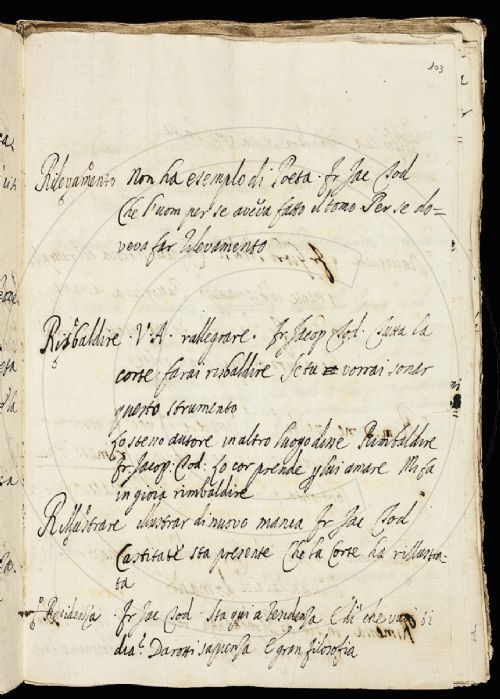 103
Rilevamento Non ha esempio di Poeta. Fr Jac Tod
Che l'uom per se aveva fatto il tomo Per se do=
veva far rilevamento
Risbaldire. V. A. rallegrare. Fr Jacop Tod. Tutta la
corte farai risbaldire Se tu vorrai sonar
questo strumento
Lo stesso autore in altro luogo disse Rimbaldire
Fr. Jacop: Tod: Lo cor prende p lui amare Mi fa
in gioia rimbaldire
Rillustrare illustrar di nuovo manca Fr Jac Tod
Castitate sta presente Che la Corte ha rillustra=
ta
Residenza. Fr Jac Tod. Sta qui a residenza E di che
Darotti sapienza E gran filosofia